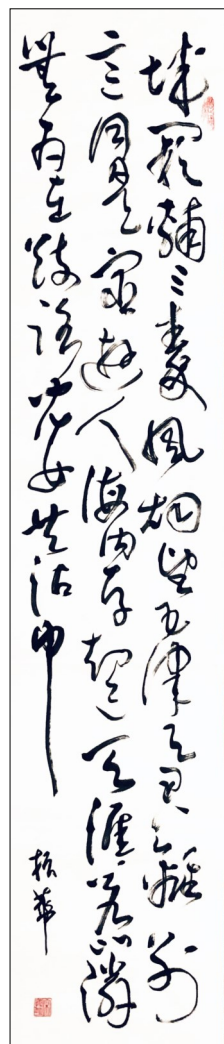 城闕輔三秦風烟望五津與君離別
意同是宦遊人海内存知己天涯若比鄰
無為在歧路兒女共沾巾
振華